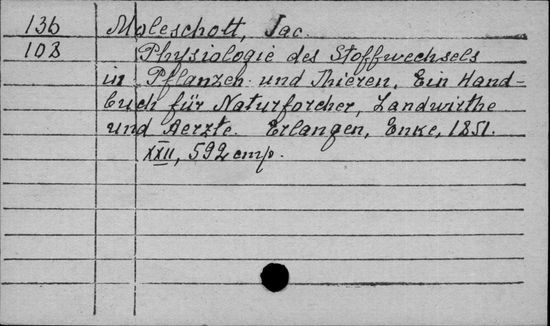 136 Moleschott, Jac.
108 Physiologie des Stoffwechsels
in Pflanzen und Thieren. Ein Hand-
buch für Naturforcher, Landwirthe
und Aerzte. Erlangen, Enke, 1851.
XXII, 592 стр.